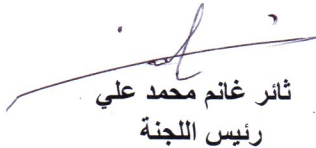 ثائر غانم محمد علي
رئيس اللجنة